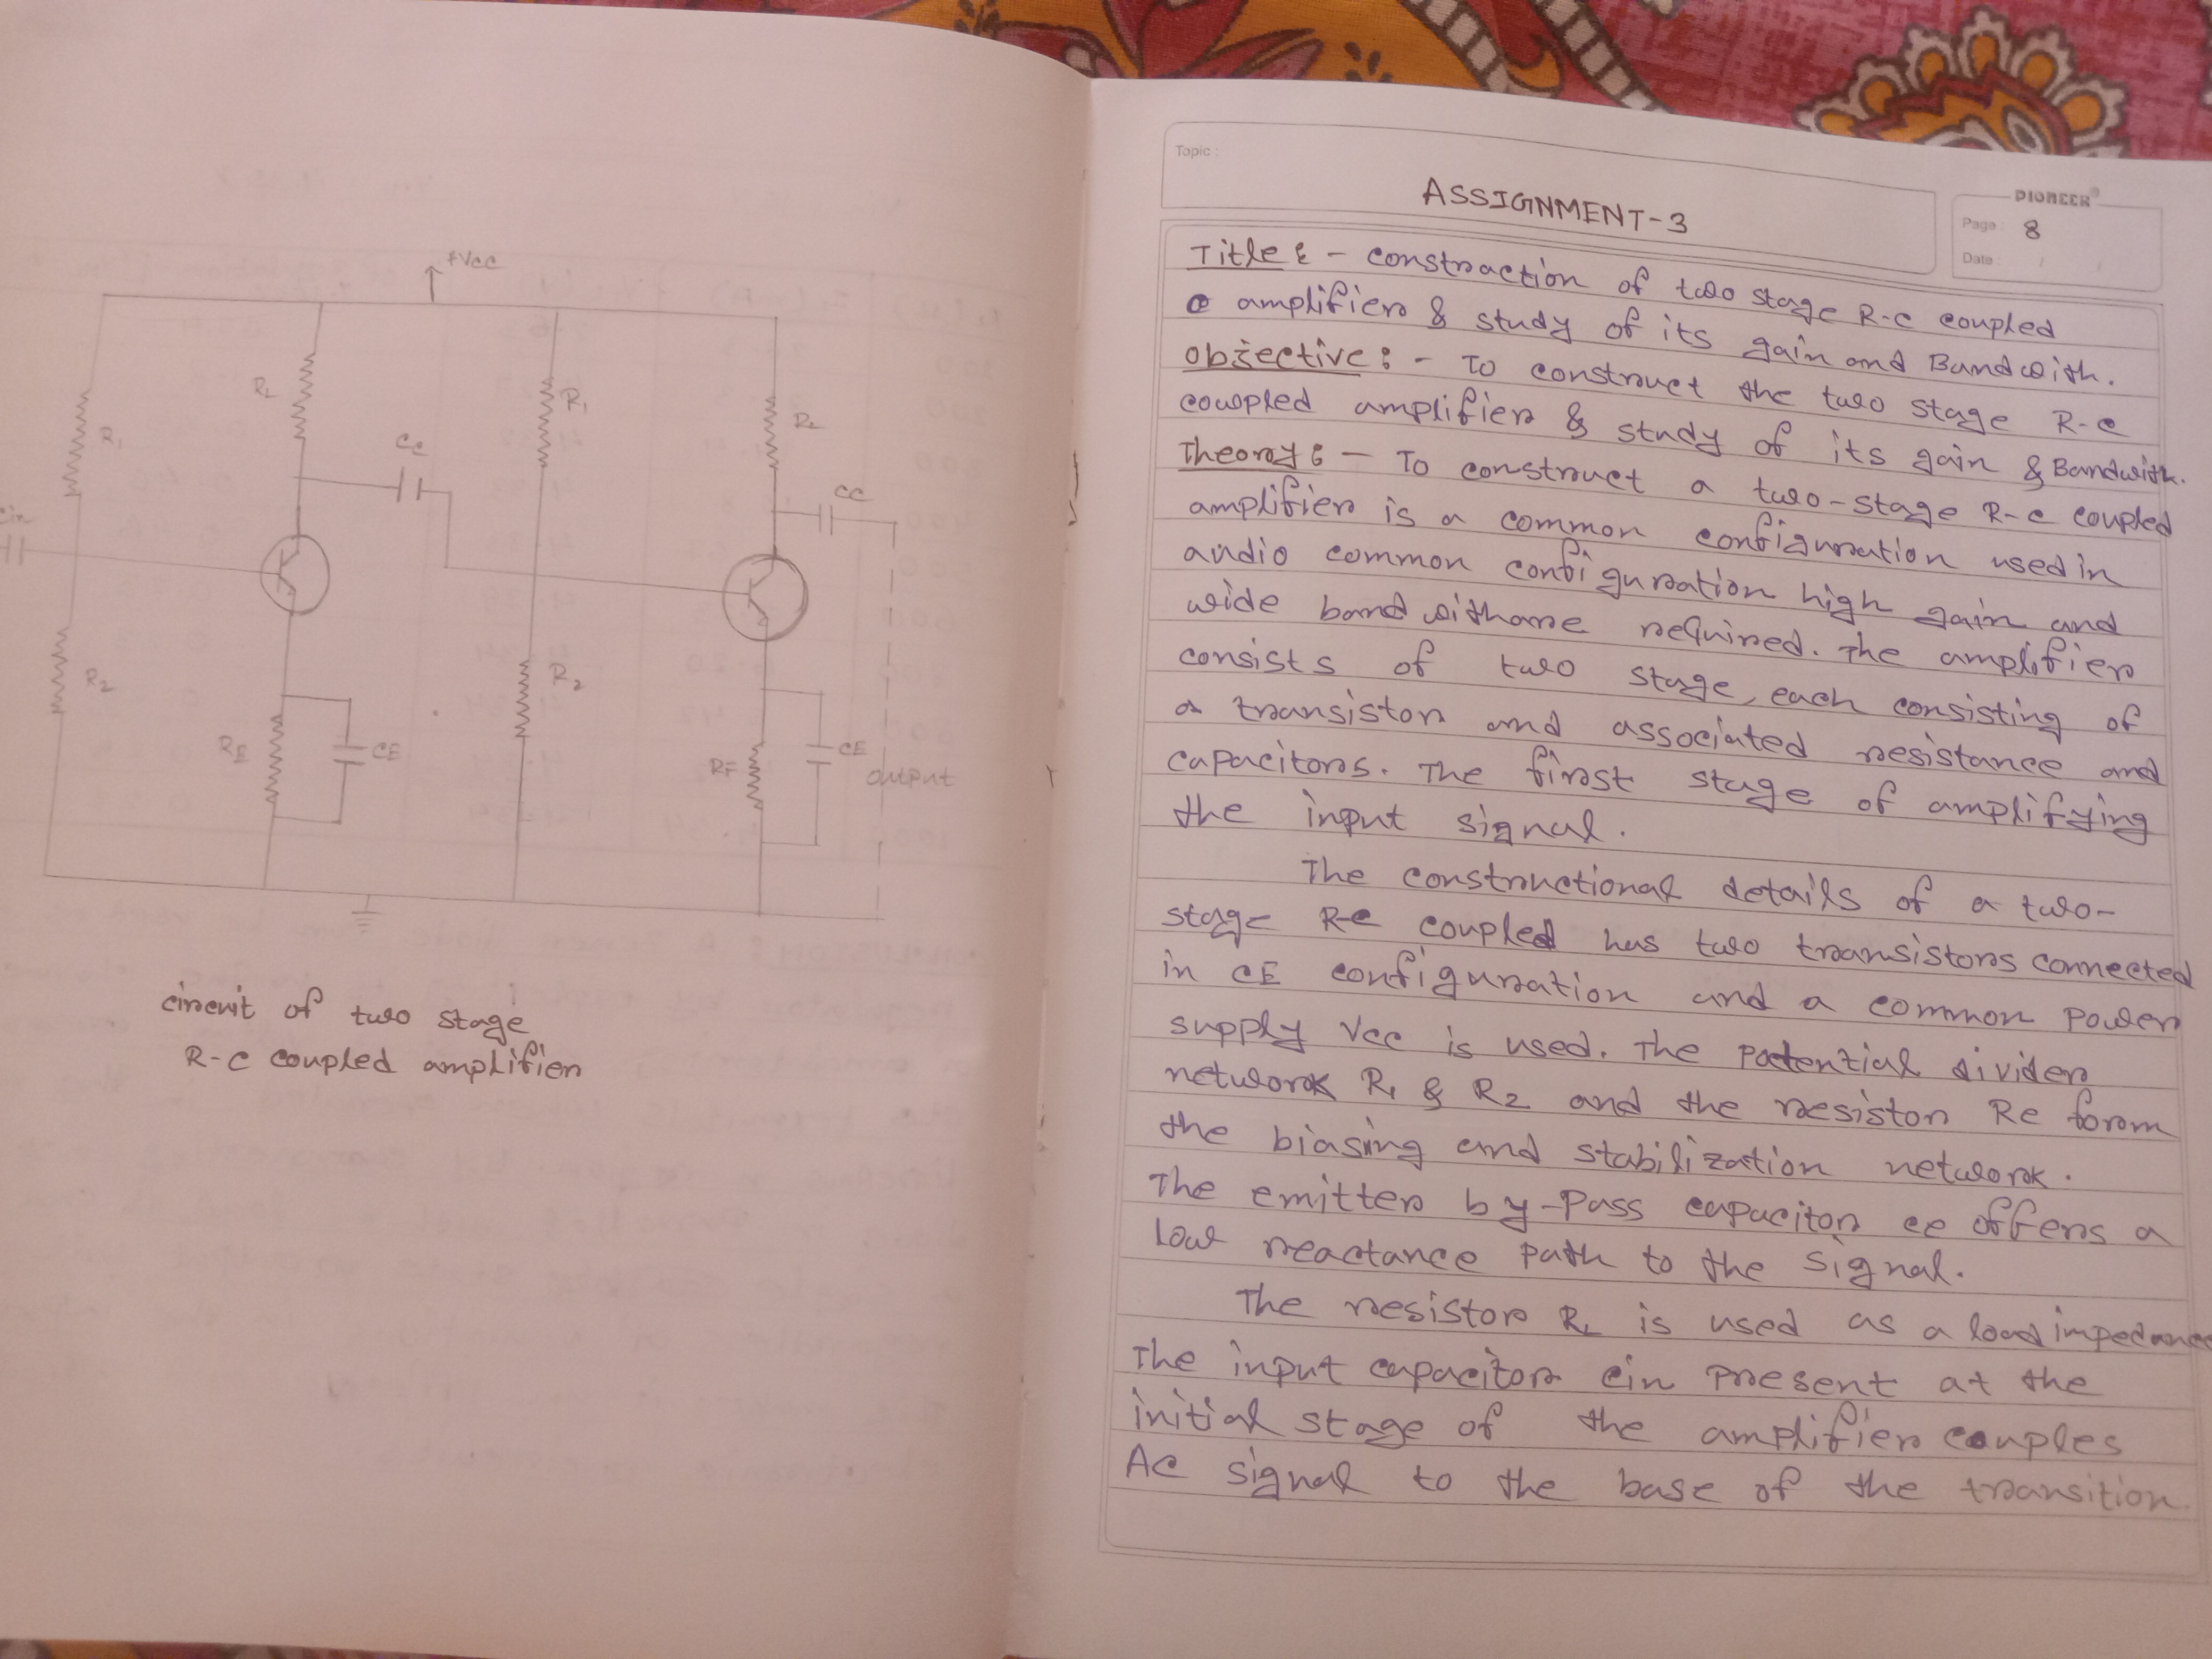 +Vcc
RL
R1
R1
RL
Cc
CC
Cin
R2
R2
RE
CE
RF
CE
output
circuit of two stage
R-C coupled amplifier
Topic :
PIONEER®
Page 8
Date / /
ASSIGNMENT-3
Title : - constraction of two stage R-c coupled
amplifier & study of its gain and Bandwith.
Objective : - To construct the two stage R-c
coupled amplifier & study of its gain & Bandwith.
Theory : - To construct a two-stage R-c coupled
amplifier is a common configuration used in
audio common configuration high gain and
wide band withare required. The amplifier
consists of two stage, each consisting of
a transistor and associated resistance and
capacitors. The first stage of amplifying
the input signal.
The constructional details of a two-
stage R-c coupled has two transistors connected
in CE configuration and a common power
supply Vcc is used. The potential divider
network R1 & R2 and the resistor Re form
the biasing and stabilization network.
The emitter by-pass capacitor ce offers a
low reactance path to the signal.
The resistor RL is used as a load impedance
The input capacitor cin present at the
initial stage of the amplifier couples
AC signal to the base of the transition.